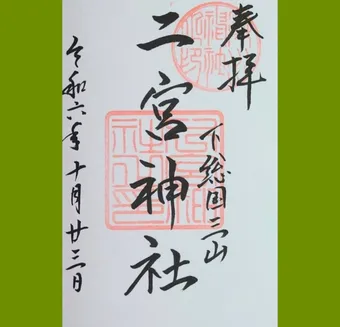 奉拝
下総国三山
二宮神社
令和六年十月廿三日